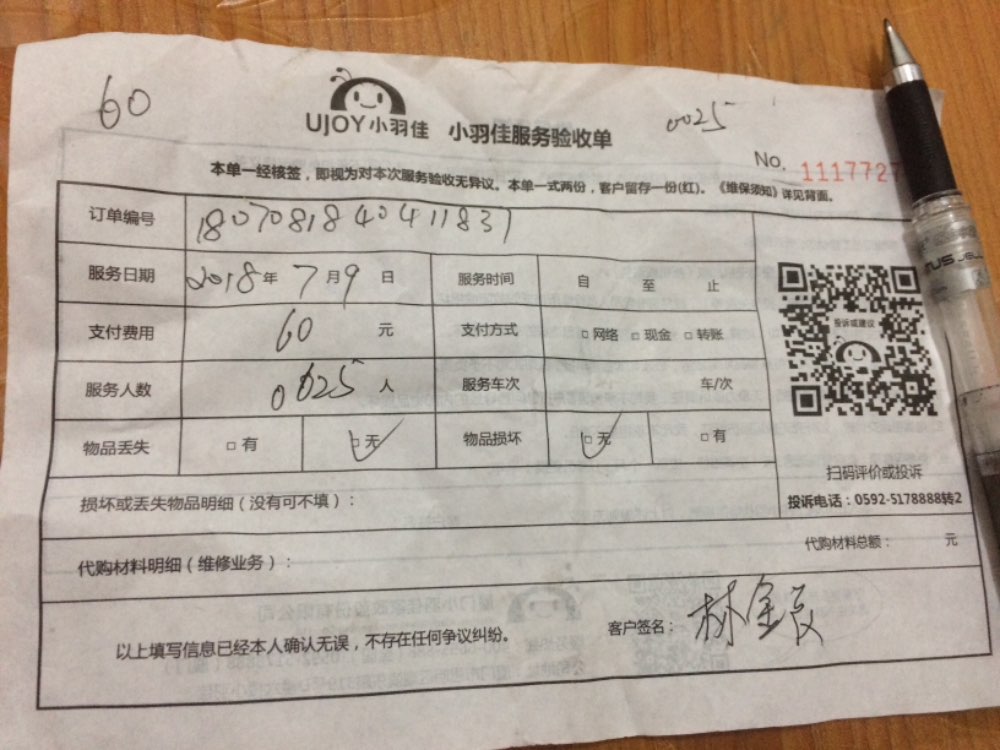 60
0025
UJOY小羽佳 小羽佳服务验收单
No. 1117727
本单一经核签，即视为对本次服务验收无异议。本单一式两份，客户留存一份(红)。《维保须知》详见背面。
订单编号 1807081840411837
服务日期 2018年7月9日 服务时间 自 至 止
支付费用 60 元 支付方式 □网络 □现金 □转账
投诉或建议
服务人数 0025 人 服务车次 车/次
物品丢失 □有 □无 物品损坏 □无 □有
扫码评价或投诉
投诉电话：0592-5178888转2
损坏或丢失物品明细（没有可不填）：
代购材料明细（维修业务）： 代购材料总额： 元
以上填写信息已经本人确认无误，不存在任何争议纠纷。 客户签名：林金